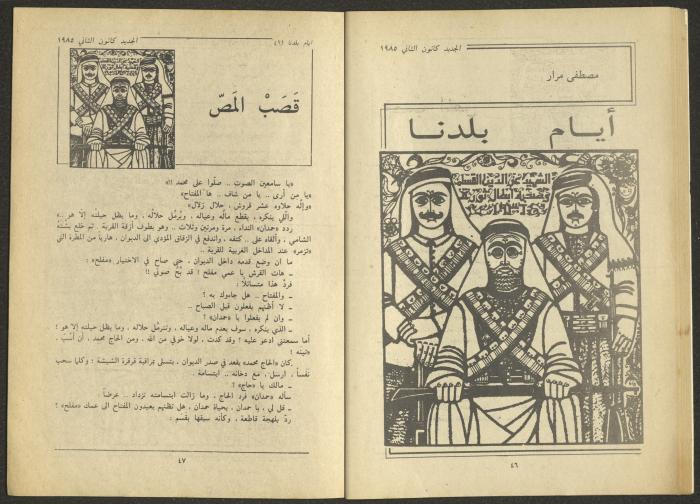 الجديد كانون الثاني ١٩٨٥
مصطفى مرار
أيام بلدنا
الشهيد عز الدين القسام
٤٦
ايام بلدنا (٤٦)
الجديد كانون الثاني ١٩٨٥
قَصَبْ المَصّ
«يا سامعين الصوت .. صلّوا على محمد !!»
«يا مين أرى .. يا مين شاف .. ها المفتاح»
«وإلُه حلاوه عشر قروش ، حلال زلال»
«واللي ينكره ، يقطع ماله وعياله ، ويُرمّل حلاله ، وما يظل حيلته إلا هو ..»
ردد «حمدان» النداء ، مرة ومرتين وثلاث .. وهو يطوف أزقة القرية . ثم خلع
الشامي ، وألقاه على .. كتفه ، واندفع في الزقاق المؤدي الى الديوان ، هارباً من المطرة التي
عند المداخل الغربية للقرية ..
ما ان وضع قدمه داخل الديوان ، حتى صاح في الاختيار «مفلح» :
ـ هات القرش يا عمي مفلح ! قد بُحّ صوتي !!
فردّ هذا متسائلاً :
ـ والمفتاح .. هل جاءوك به ؟
ـ لا أظنهم يفعلون قبل الصباح ..
ـ وان لم يفعلوا يا «حمدان» !
ـ الذي ينكره ، سوف يعدم ماله وعياله ، وتترمّل حلاله ، وما يظل حيلته إلا هو !
أما سمعتني ادعو عليه ؟ وقد كدت ، لولا خوفي من الله . ومن الحاج محمد ، أن أسبّ ،
«دينه !
كان «الحاج محمد» يقعد في صدر الديوان ، يتسلى بمراقبة قرقرة الشيشة ؛ وكلما سحب
نفَساً ، ارسل ، مع دخانه .. ابتسامة .
ـ مالك يا «حاج» ؟
سأله «حمدان» فرد الحاج ، وما زالت ابتسامته تزداد .. عرضاً :
ـ قل لي ، يا حمدان ، بحياة حمدان ، هل تظنهم يعيدون المفتاح الى عمك «مفلح» ؟
ردّ بلهجة قاطعة ، وكأنه سبقها بقسم :
٤٧